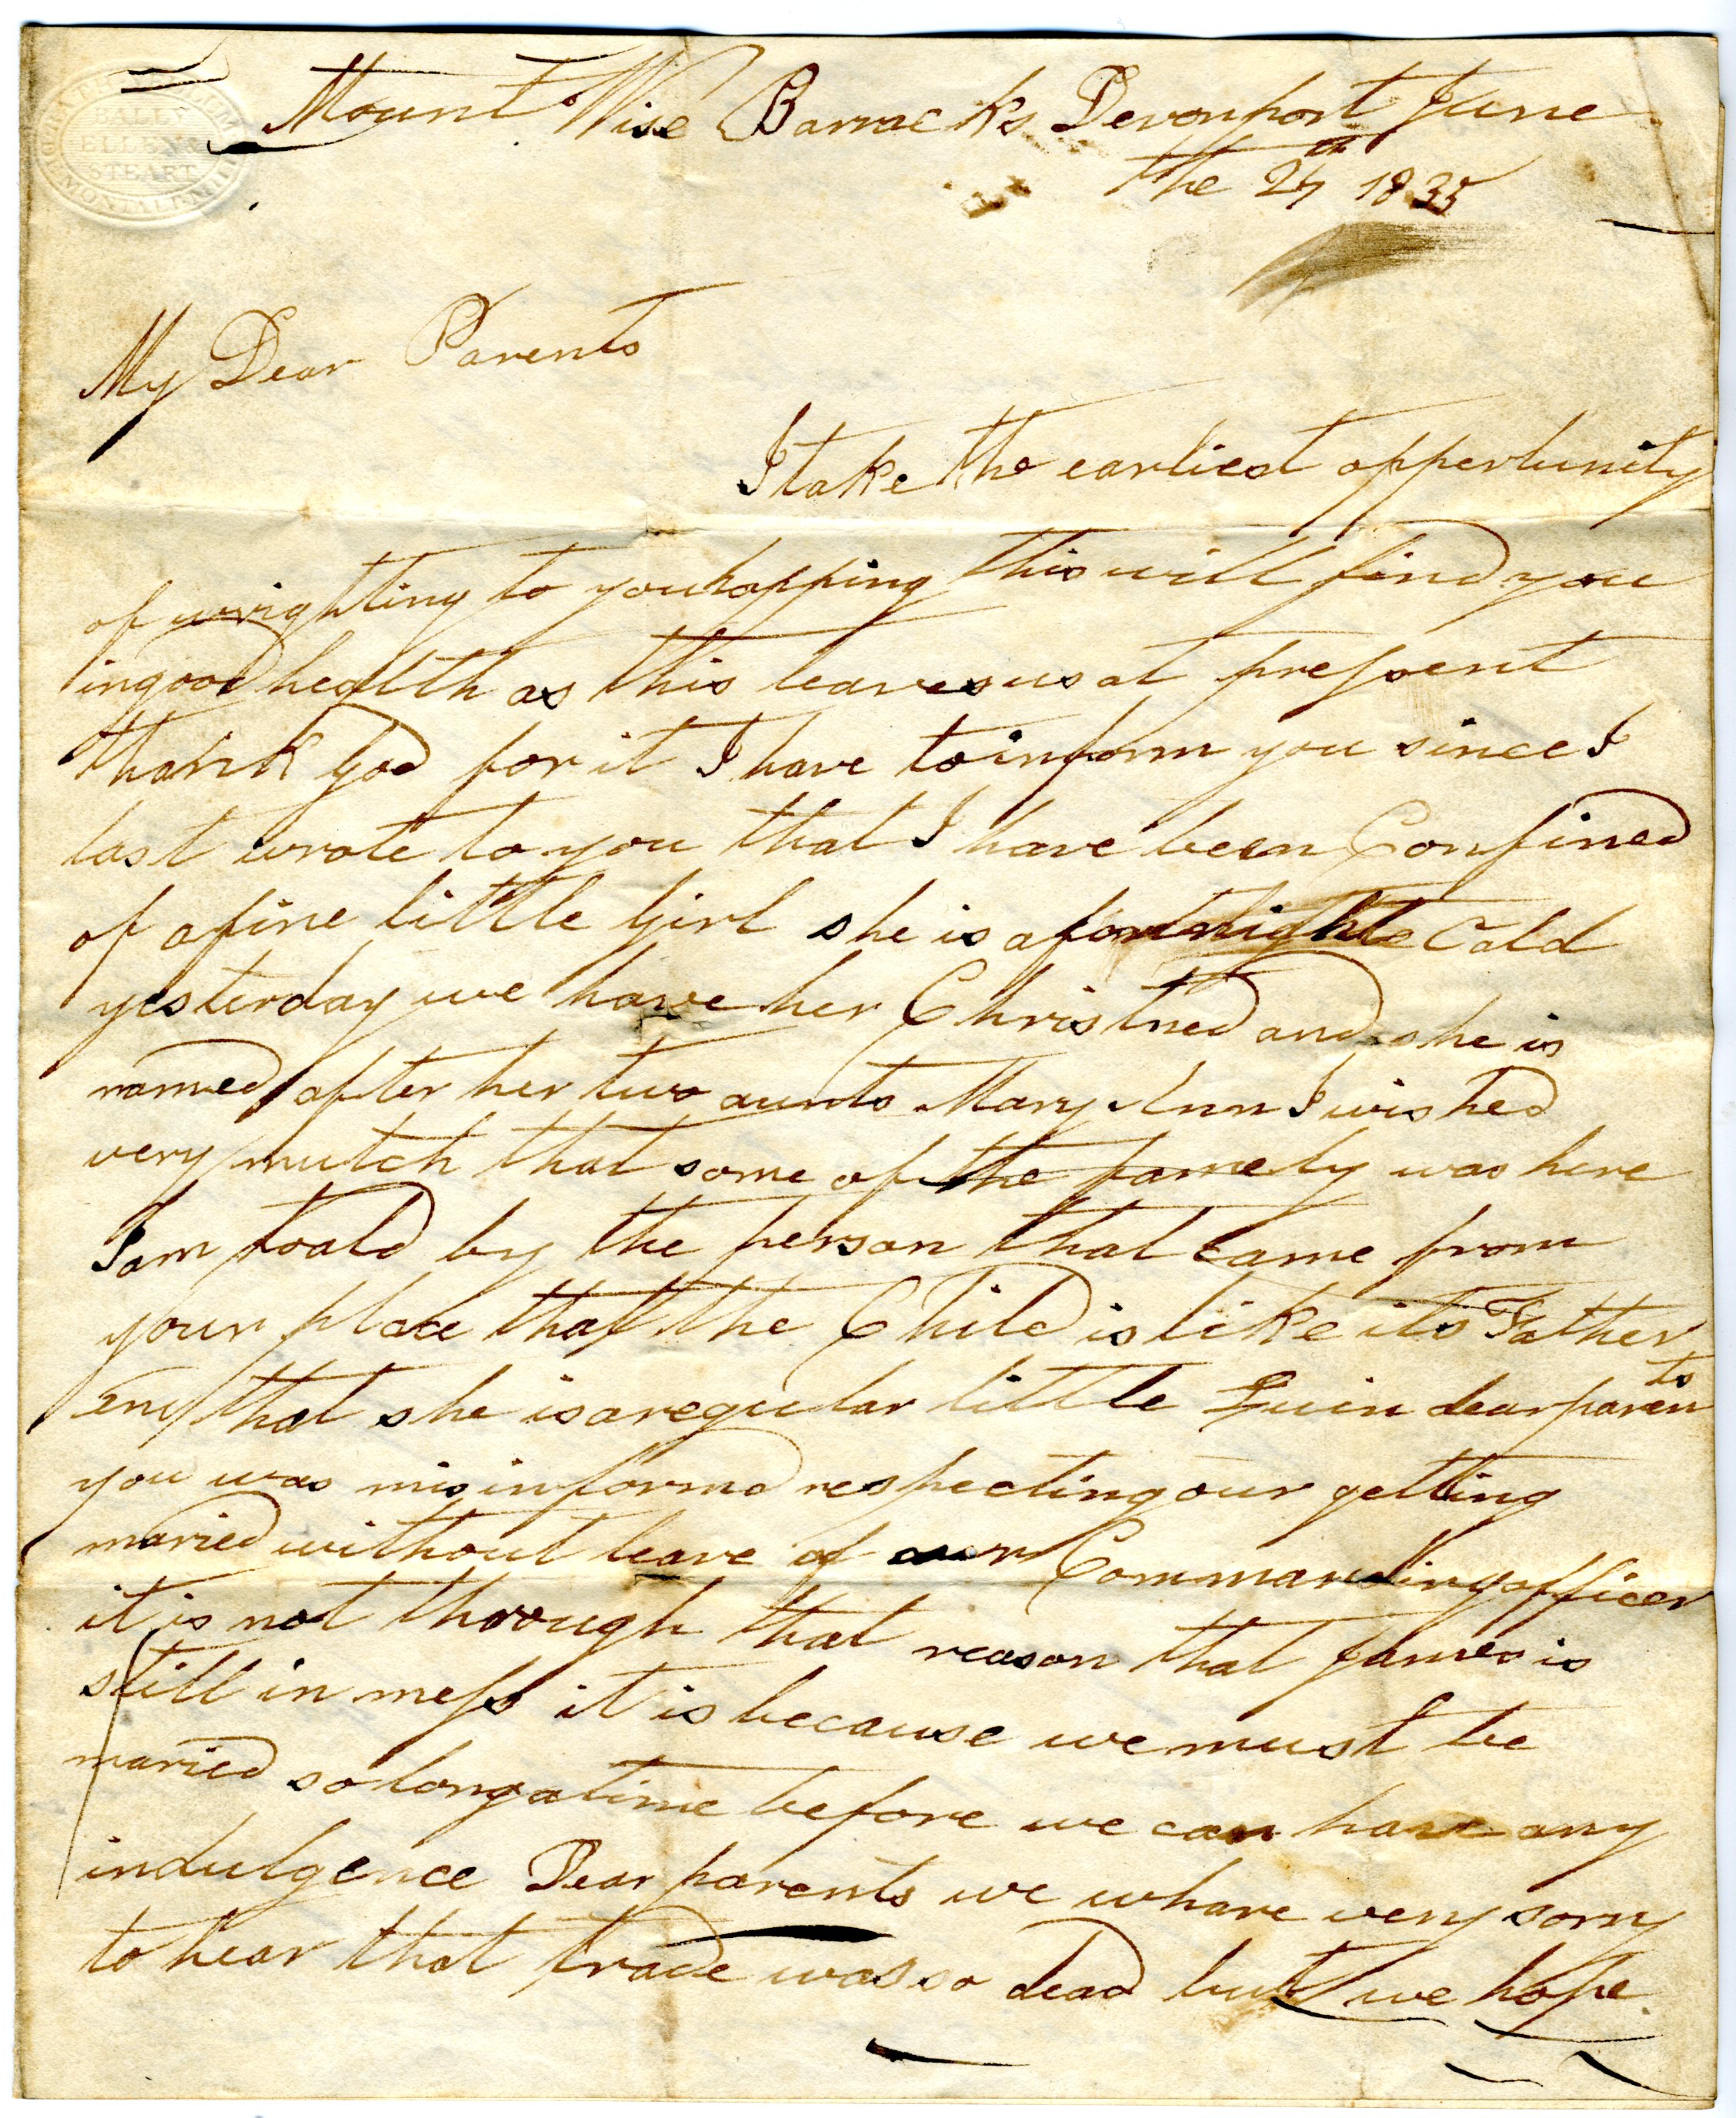 ALLY
ELLEN &
STEART
Mount Wise Barracks Devonport June
the 24th 1835
My Dear Parents
I take the earliest oppertunity
of wrighting to you hopping this will find you
in good healtth as this leaves us at pressent
thank God for it I have to inform you since I
last wrote to you that I have been Confined
of a fine little Girl she is a fortnight oald
yesterday we have her Christned and she is
named after her two aunts Mary Ann I wished
very mutch that some of the famely was here
I am toald by the person that came from
your place that the Child is like its Father
and that she is a regular little dear parents
you was misinformd respecting our getting
maried without leave of our Commanding officer
it is not thorough that reason that James is
still in mess it is because we must be
maried so long a time before we can have any
indulgence Dear parents we whare very sorry
to hear that trade was so dead but we hope